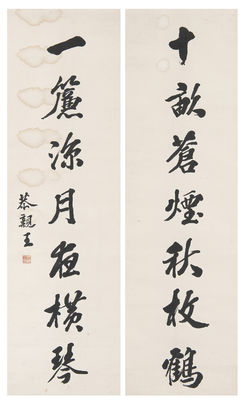 十畝蒼煙秋放鶴
一簾涼月夜橫琴
恭親王